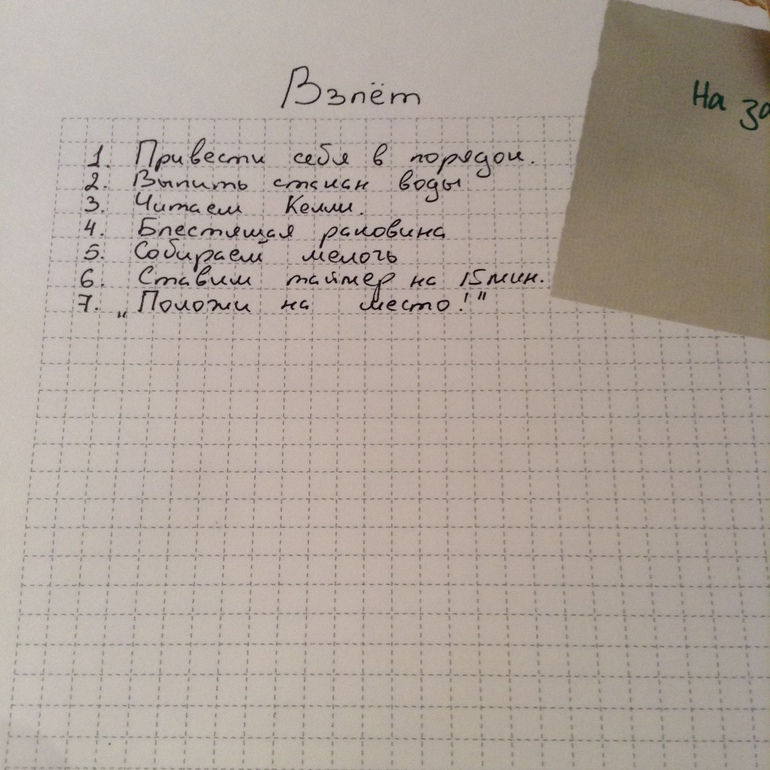 Взлёт
На за
1. Привести себя в порядок.
2. Выпить стакан воды
3. Читаем Келли.
4. Блестящая раковина
5. Собираем мелочь
6. Ставим таймер на 15 мин.
7. „Положи на место!"